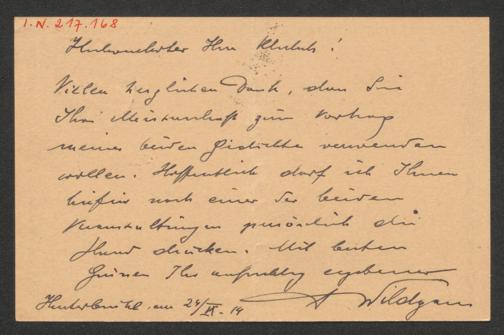 I.N. 217.168
Herr !
Vielen herzlichen Dank, dass Sie
Ihre Meisterschaft zum Vortrag
meiner beiden Gedichte verwenden
wollen. Hoffentlich darf ich Ihnen
hiefür nach einer der beiden
Veranstaltungen persönlich die
Hand drücken. Mit besten
Grüssen Ihr aufrichtig ergebener
A Wildgans
Hinterbrühl, am 24/IX. 19